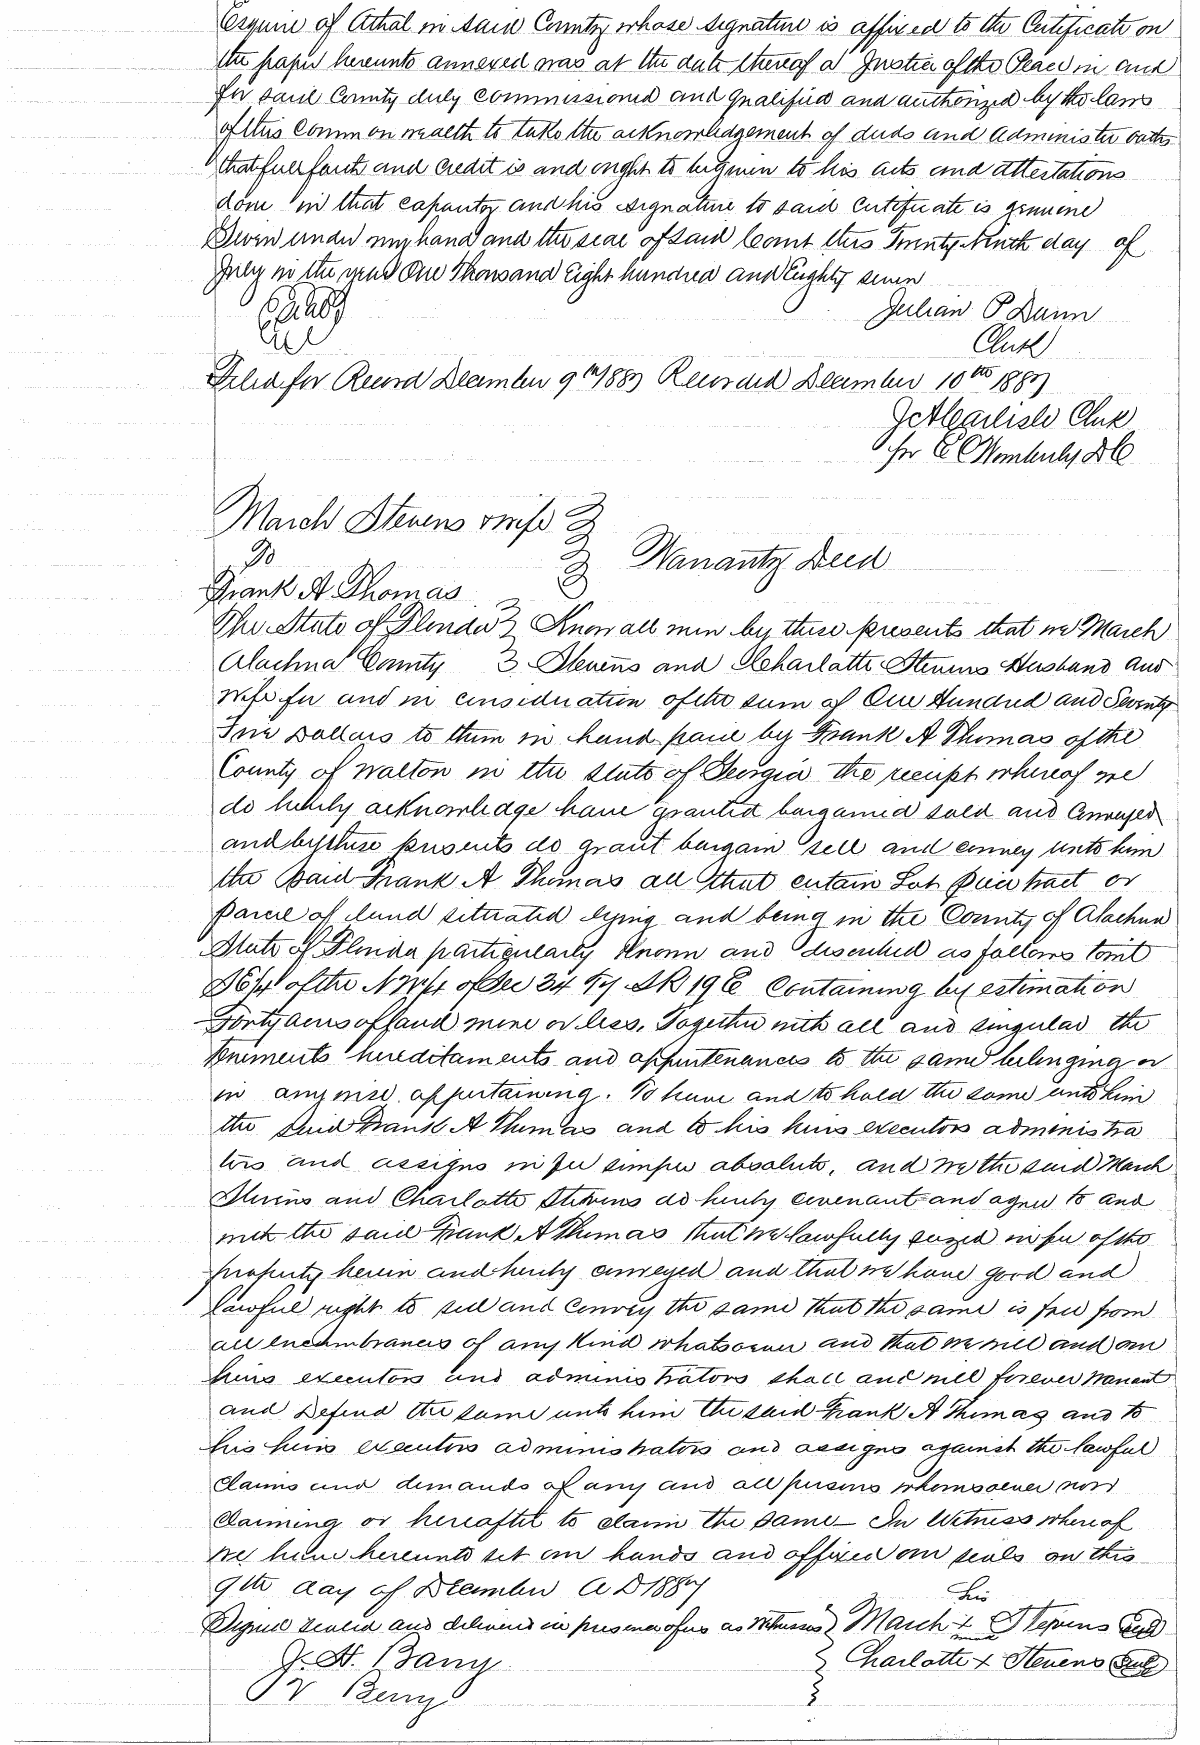 Esquire of Athol in said County whose signature is affixed to the Certificate on
the paper hereunto annexed was at the date thereof a Justice of the Peace in and
for said County duly commissioned and qualified and authorized by the laws
of this Commonwealth to take the acknowledgement of deeds and administer oaths
that full faith and credit is and ought to be given to his acts and attestations
done in that capacity and his signature to said Certificate is genuine
Given under my hand and the seal of said Court this Twenty Ninth day of
July in the year One Thousand Eight hundred and Eighty seven
Julian P Dunn
Clerk
Filed for Record December 9th 1887 Recorded December 10th 1887
J A Carlisle Clerk
for E C Wimberly D C
March Stevens & wife
To
Warranty Deed
Frank A Thomas
The State of Florida } Know all men by these presents that we March
Alachua County } Stevens and Charlotte Stevens Husband and
Wife for and in consideration of the sum of One Hundred and Seventy
Five Dollars to them in hand paid by Frank A Thomas of the
County of Walton in the State of Georgia the receipt whereof we
do hereby acknowledge have granted bargained sold and Conveyed
and by these presents do grant bargain sell and convey unto him
the said Frank A Thomas all that certain Lot piece tract or
parcel of land situated lying and being in the County of Alachua
State of Florida particularly Known and described as follows towit
SE/4 of the NW/4 of Sec 24 R 19 E Containing by estimation
Forty acres of land more or less. Together with all and singular the
tenements hereditaments and appurtenances to the same belonging or
in anywise appertaining. To have and to hold the same unto him
the said Frank A Thomas and to his heirs executors administra
tors and assigns in fee simple absolute, and we the said March
Stevens and Charlotte Stevens do hereby covenant and agree to and
with the said Frank A Thomas that we lawfully seized in fee of the
property herein and hereby conveyed and that we have good and
lawful right to sell and convey the same that the same is free from
all encumbrances of any Kind whatsoever and that we will and our
heirs executors and administrators shall and will forever Warrant
and Defend the same unto him the said Frank A Thomas and to
his heirs executors administrators and assigns against the lawful
claims and demands of any and all persons whomsoever now
claiming or hereafter to claim the same In Witness whereof
we have hereunto set our hands and affixed our seals on this
9th day of December A D 1887
his
Signed sealed and delivered in presence of us as Witnesses } March + Stevens Seal
J. H. Barry
Charlotte + Stevens Seal
V Berry